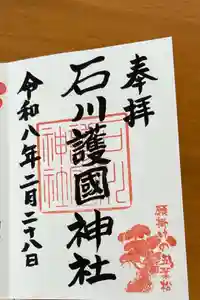 奉拝
石川護國神社
令和八年二月二十八日
石川護國神社